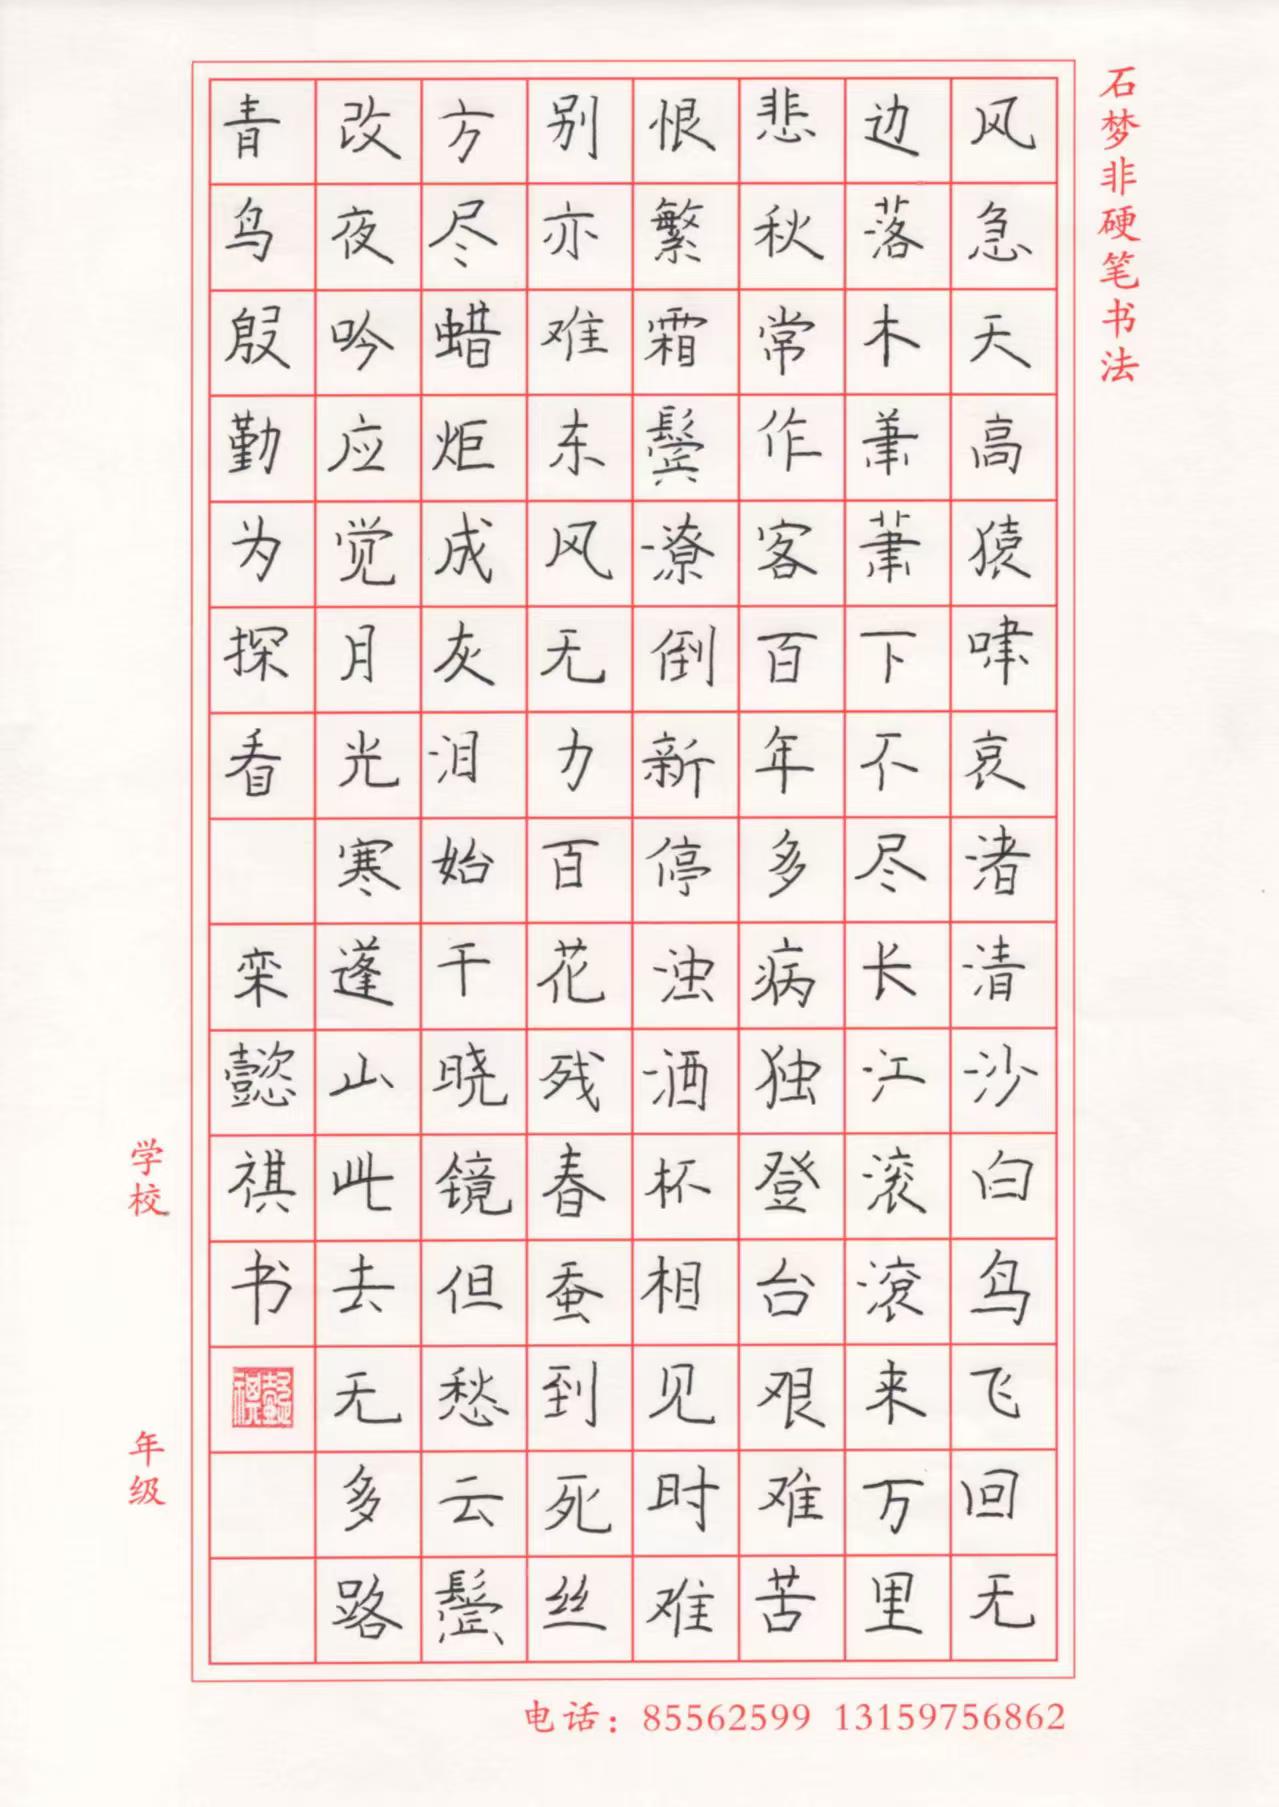 石梦非硬笔书法
风急天高猿啸哀渚清沙白鸟飞回无
边落木萧萧下不尽长江滚滚来万里
悲秋常作客百年多病独登台艰难苦
恨繁霜鬓潦倒新停浊酒杯相见时难
别亦难东风无力百花残春蚕到死丝
方尽蜡炬成灰泪始干晓镜但愁云鬓
改夜吟应觉月光寒蓬山此去无多路
青鸟殷勤为探看 栾懿祺书
学校 年级
电话：85562599 13159756862